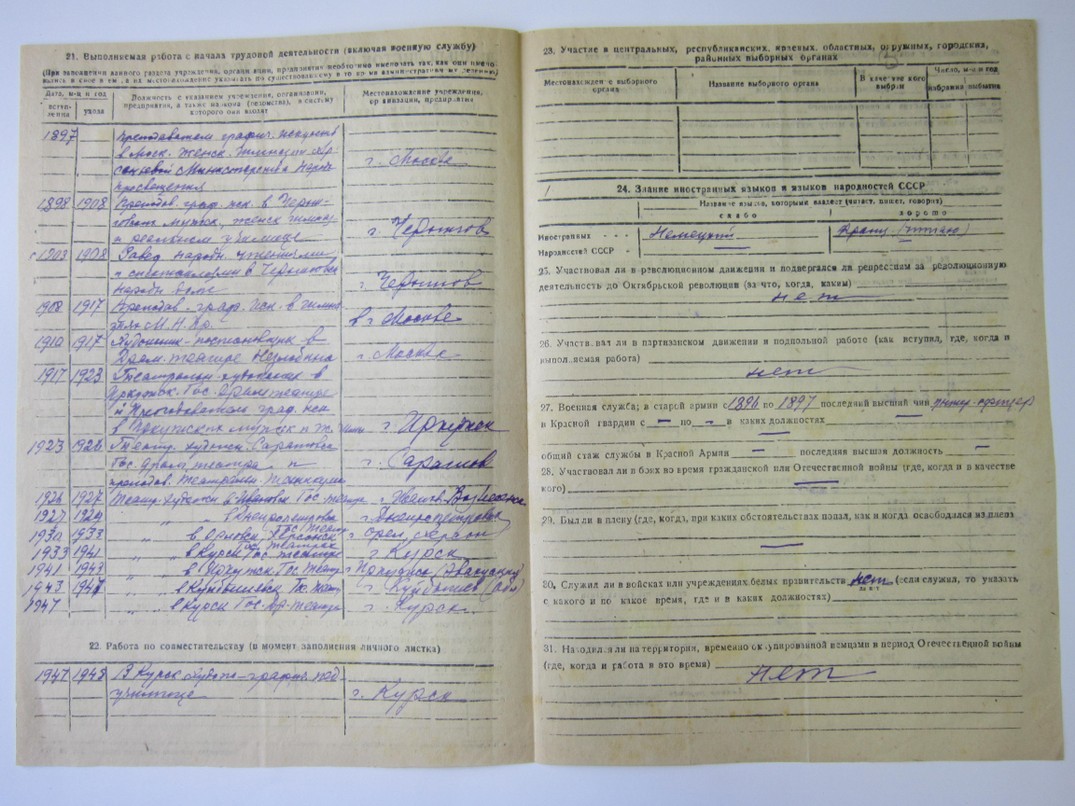 21. Выполняемая работа с начала трудовой деятельности (включая военную службу)
Дата, м-ц и год
вступления
ухода
Должность с указанием учреждения, организации, предприятия, а также наркома (ведомства), в систему которого они входят
Местонахождение учреждения, организации, предприятия
1897
Преподавателем график. искусств
в Моск. женск. гимназии
Министерства народн.
просвещения
г. Москве
1898 1908 Преподав. граф. иск. в Черни-
говских мужск., женск. гимназ.
и реальном училище
г. Чернигов
1903 1908 Завед. народн. чтениями
и спектаклями в Черниговск.
народн. доме
г. Чернигов
1908 1917 Преподав. граф. иск. в гимна-
зиях М. Н. Пр.
в г. Москве
1910 1917 Художник-постановщик в
Драм. театре Незлобина
г. Москва
1917 1923 Театральн. художник в
Иркутск. Гос. драмтеатре
и преподавателем граф. иск.
в Иркутских мужск. и ж.
г. Иркутск
1923 1926 Театр. художн. Саратовск.
Гос. драм. театра и
преподав. театральн. техникума
г. Саратов
1926 1927 Театр. художн. в Иванове Гос. театре
1927 1929 " " в Днепропетровск. Гос. театр
г. Днепропетровск
1930 1933 " " в Орловск., Херсонск. Гос. театрах
г. Орел, Херсон
1933 1941 " " в Курск. Гос. театре г. Курск
1941 1943 " " в Иркутск. Гос. театр г. Иркутск (Эвакуация)
1943 1947 " " в Куйбышевск. г. Куйбышев
1947 " " в Курск. Гос. др. театре г. Курск
22. Работа по совместительству (в момент заполнения личного листка)
1947 1948 В Курск. худож.-график. пед.
училище
г. Курск
23. Участие в центральных, республиканских, краевых, областных, окружных, городских,
районных выборных органах
Местонахождение выборного органа
Название выборного органа
В качестве кого выбран
Число, м-ц и год
избрания
выбытия
24. Знание иностранных языков и языков народностей СССР
Название языка, которыми владеет (читает, пишет, говорит)
слабо
хорошо
Иностранных - - - Немецкий Франц. (читаю)
Народностей СССР -
25. Участвовал ли в революционном движении и подвергался ли репрессиям за революционную
деятельность до Октябрьской революции (за что, когда, каким)
нет
26. Участвовал ли в партизанском движении и подпольной работе (как вступил, где, когда и
выполняемая работа)
нет
27. Военная служба; в старой армии с 1896 по 1897 последний высший чин унтер-офицер
в Красной гвардии с — по — в каких должностях —
общий стаж службы в Красной Армии — последняя высшая должность —
28. Участвовал ли в боях во время гражданской или Отечественной войны (где, когда и в качестве
кого) —
29. Был ли в плену (где, когда, при каких обстоятельствах попал, как и когда освободился из плена
—
30. Служил ли в войсках или учреждениях белых правительств нет (если служил, то указать
да-нет
с какого и по какое время, где и в каких должностях)
31. Находился ли на территории, временно оккупированной немцами в период Отечественной войны
(где, когда и работа в это время)
нет